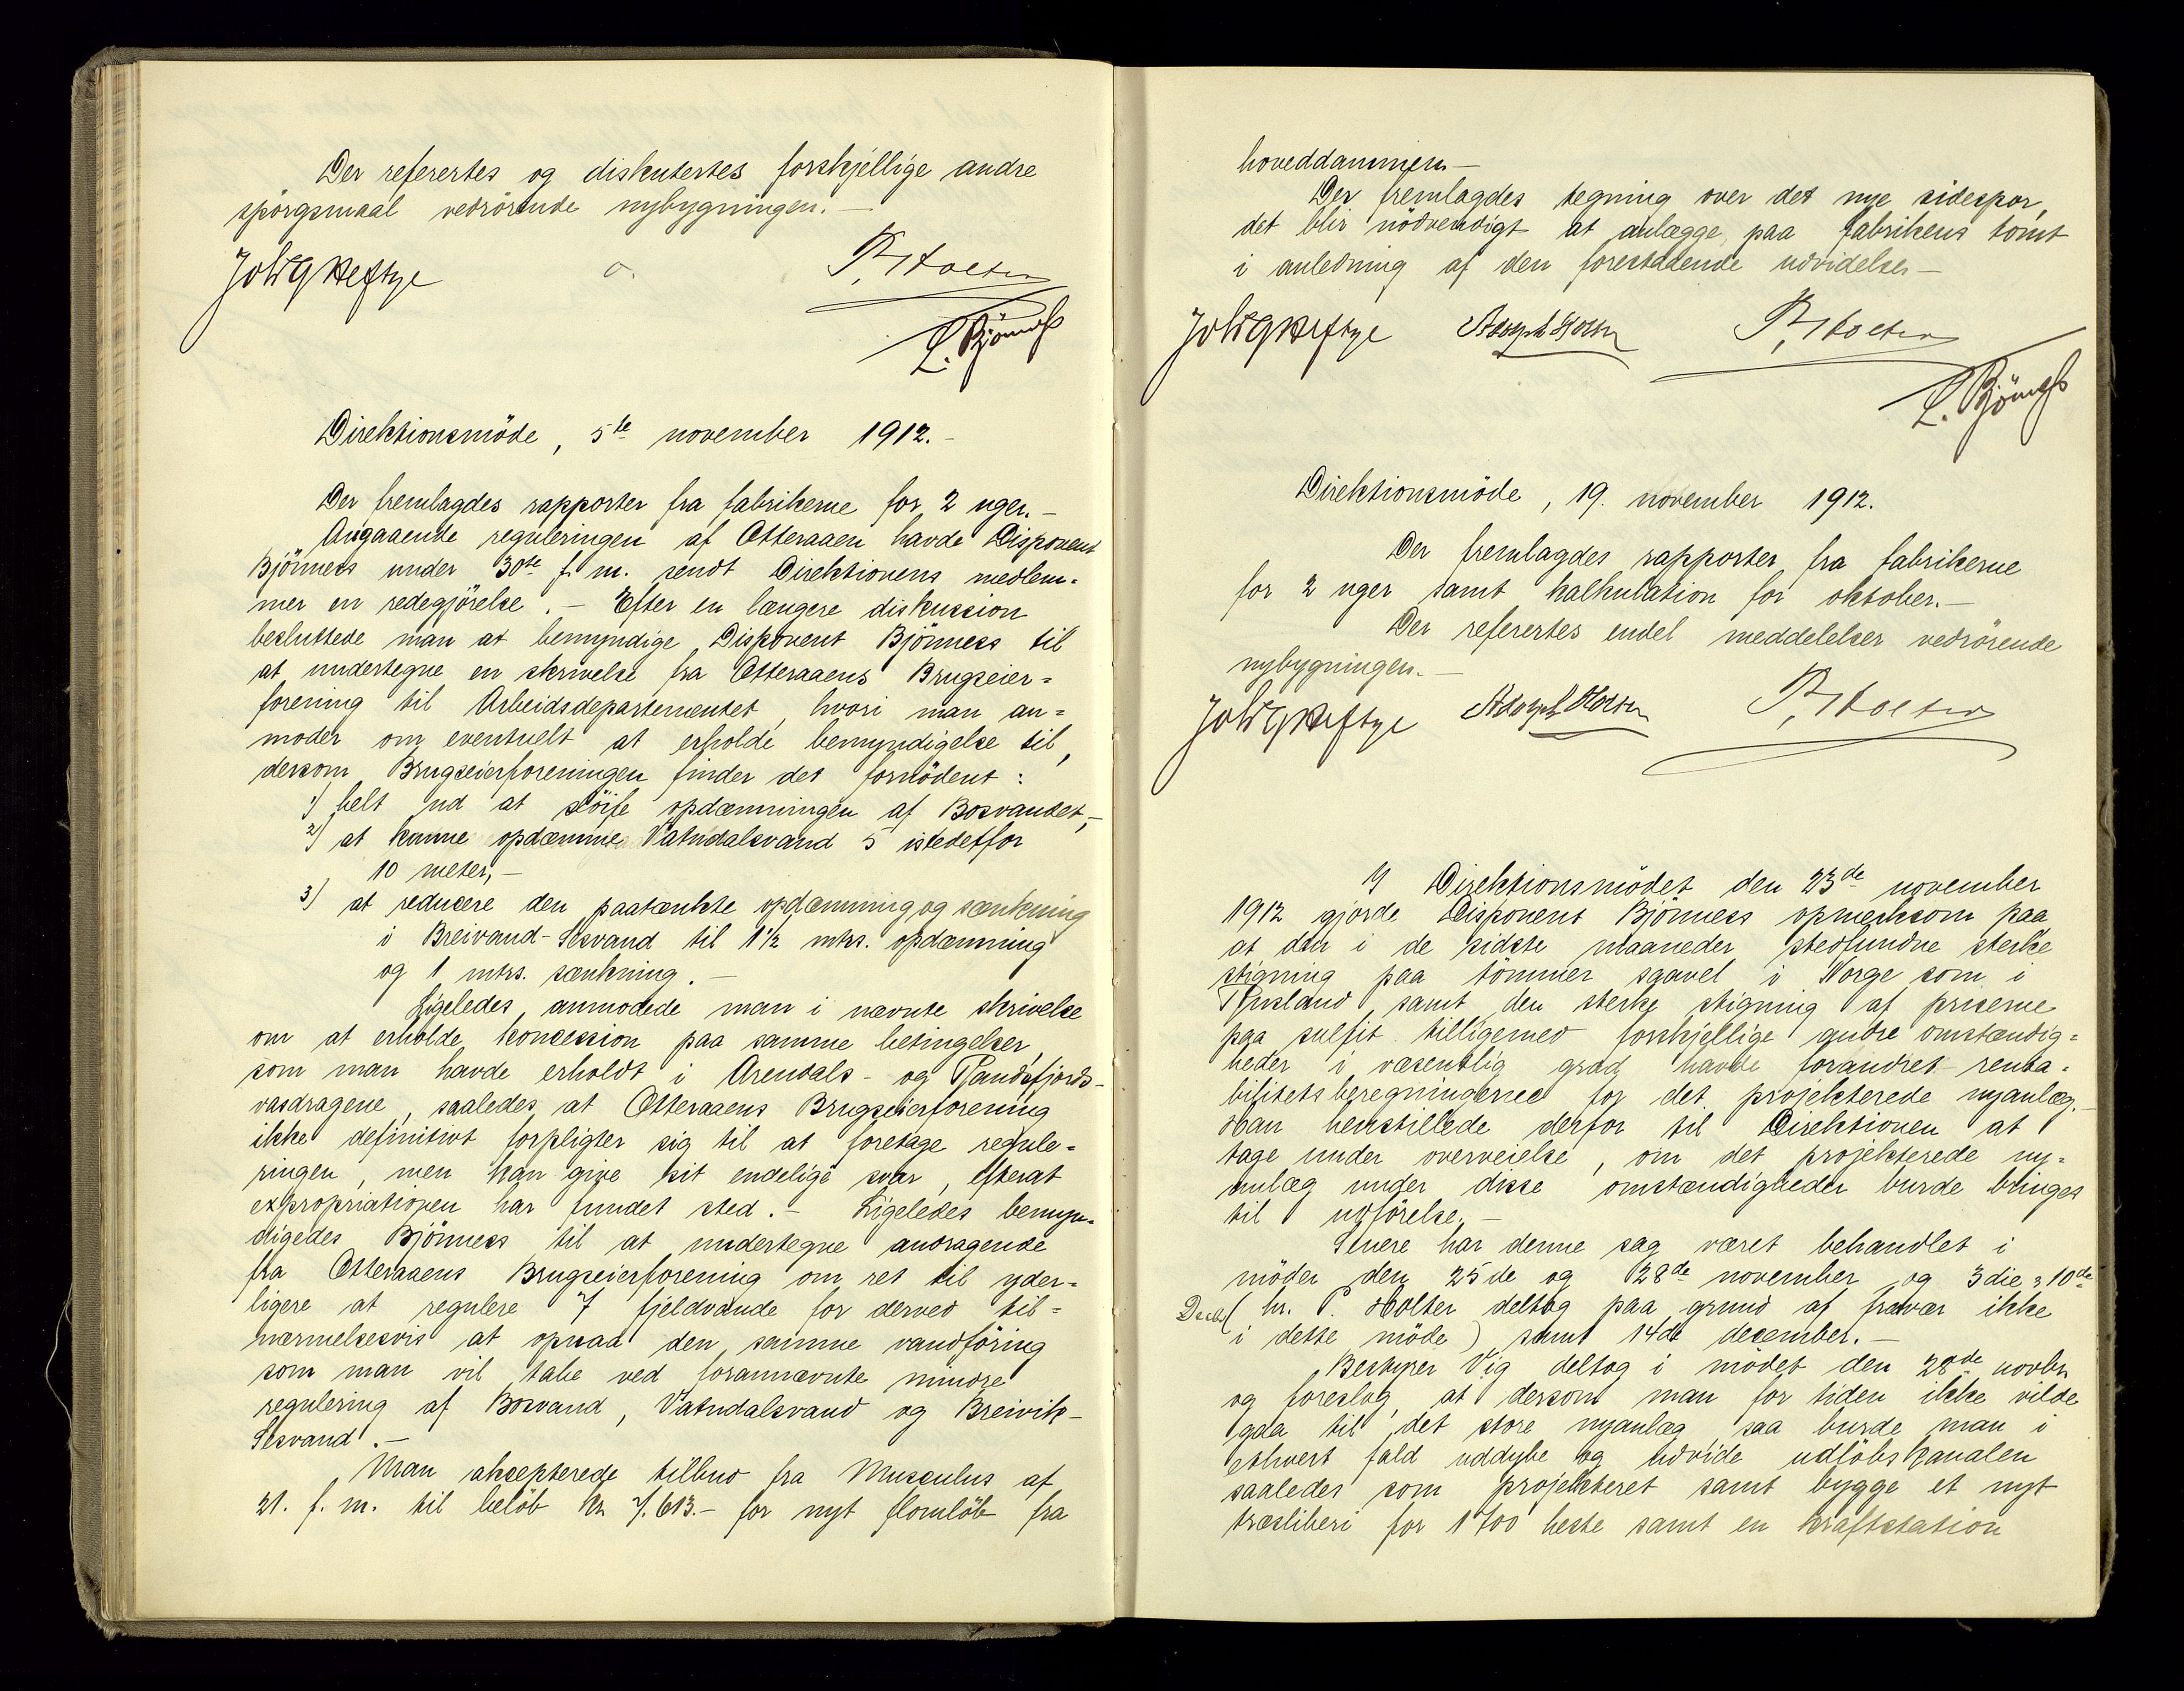 Der refertes og diskutertes forskjellige andre
spörgsmaal vedrörende nybygningen. —
Joh G Heftye
P. Holter
L. Björness
Direktionsmöde, 5te november 1912. -
Der fremlagdes rapporter fra fabrikerne for 2 uger. —
Angaaende reguleringen af Otteraaen havde Disponent
Björness under 30te f. m. sendt Direktionens medlem=
mer en redegjörelse. - Efter en længere diskussion
besluttede man at bemyndige Disponent Björness til
at undertegne en skrivelse fra Otteraaens Brugseier=
forening til Arbeidsdepartementet, hvori man an=
moder om eventuelt at erholde bemyndigelse til,
dersom Brugseierforeningen finder det fornödent:
1) helt ud at slöife opdæmningen af Bosvandet, —
2) at kunne opdæmme Vatndalsvand 5 istedetfor
10 meter, —
3) at reducere den paatænkte opdæmning og sænkning
i Breivand-Sesvand til 1 1/2 mtrs. opdæmning
og 1 mtrs. sænkning. —
Ligeledes anmodede man i nævnte skrivelse
om at erholde koncession paa samme betingelser,
som man havde erholdt i Arendals- og Randsfjords-
vasdragene, saaledes at Otteraaens Brugseierforening
ikke definitivt forpligter sig til at foretage regule=
ringen, men kan give sit endelige svar, efterat
expropriationen har fundet sted. - Ligeledes bemyn=
digedes Björness til at undertegne andragende
fra Otteraaens Brugseierforening om ret til yder=
ligere at regulere 7 fjeldvande for derved til=
nærmelsesvis at opnaa den samme vandföring
som man vil tabe ved forannævnte mindre
regulering af Bosvand, Vatndalsvand og Breivik-
Sesvand. —
Man aksepterede tilbud fra Musculus af
21. f. m. til belöb kr 7.613.- for nyt flomlöb fra
hoveddammen. —
Der fremlagdes tegning over det nye sidespor,
det blir nödvendigt at anlægge paa fabrikens tomt
i anledning af den forestaaende udvidelse. —
Joh G Heftye Adolph Holter P. Holter
L. Björness
Direktionsmöde, 19. november 1912.
Der fremlagdes rapporter fra fabrikerne
for 2 uger samt kalkulation for oktober. —
Der refertes endel meddelelser vedrörende
nybygningen. —
Joh G Heftye Adolph Holter P. Holter
I Direktionsmödet den 23de november
1912 gjorde Disponent Björness opmerksom paa
at den i de sidste maaneder stedfundne sterke
stigning paa tömmer saavel i Norge som i
Rusland, samt den sterke stigning af priserne
paa sulfit tilligemed forskjellige andre omstændig=
heder i væsentlig grad havde forandret renta=
bilitetsberegningerne for det projekterede nyanlæg. —
Han henstillede derfor til Direktionen at
tage under overveielse, om det projekterede ny=
anlæg under disse omstændigheder burde bringes
til udförelse. —
Senere har denne sag været behandlet i
möder den 25de og 28de november og 3die & 10de
Decbr (hr. P. Holter deltog paa grund af fravær ikke
i dette möde) samt 14de december. —
Bestyrer Vig deltog i mödet den 28de novbr
og foreslog, at dersom man for tiden ikke vilde
gaa til det store nyanlæg, saa burde man i
ethvert fald uddybe og udvide udlöbskanalen
saaledes som projekteret samt bygge et nyt
træsliberi for 1700 heste samt en kraftstation